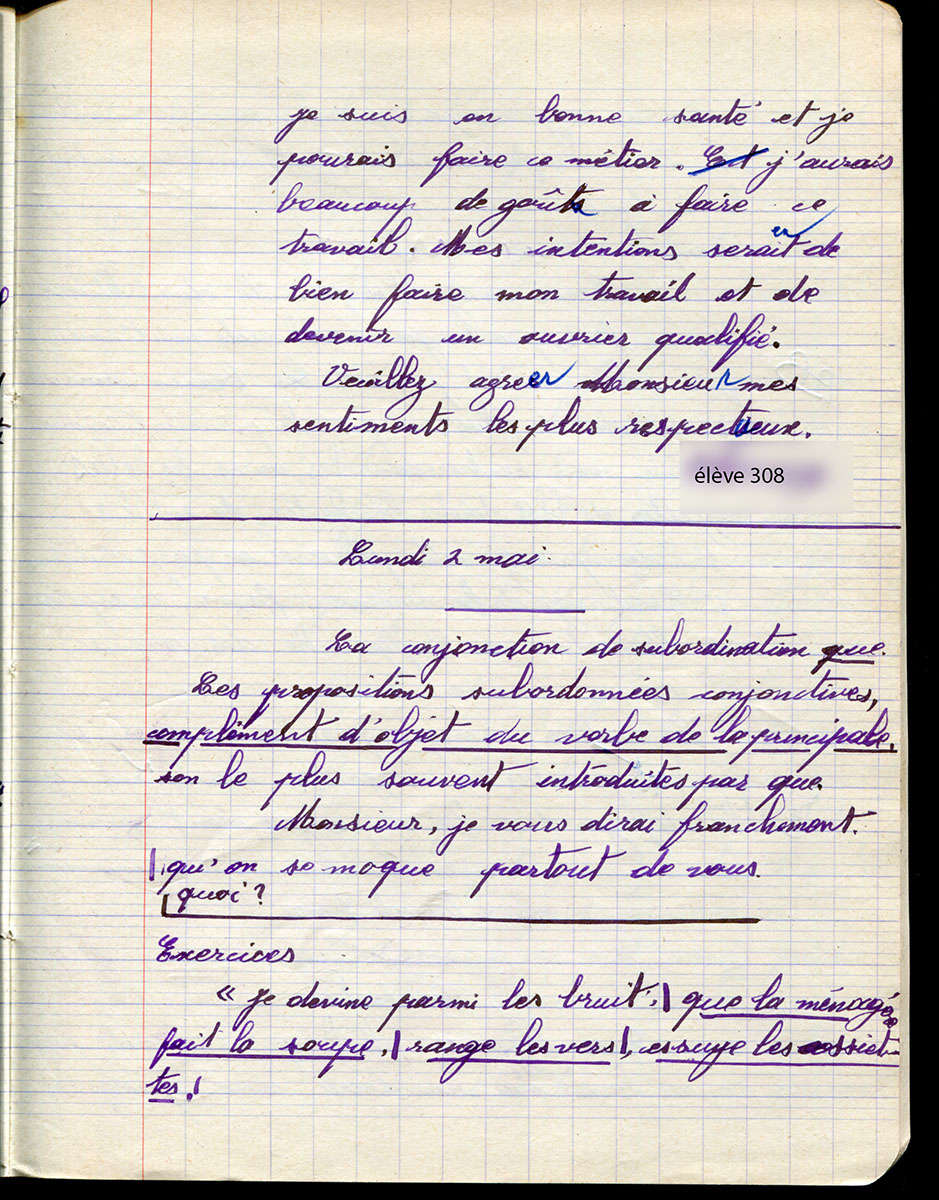 je suis en bonne santé et je
pourais faire ce métier. Est j'aurais
beaucoup de goûts à faire ce
travail. Mes intentions seraient de
bien faire mon travail et de
devenir un ouvrier qualifié.
Veuillez agreer Monsieur mes
sentiments les plus respectueux.
élève 308
Lundi 2 mai.
La conjonction de subordination que.
Les propositions subordonnées conjonctives,
complément d'objet du verbe de la principale,
son le plus souvent introduites par que.
Monsieur, je vous dirai franchement.
|qu'on se moque partout de vous.
quoi ?
Exercices
« Je devine parmi les bruit,| que la ménagère
fait la soupe,| range les vers|, essuye les assiet-
tes.|